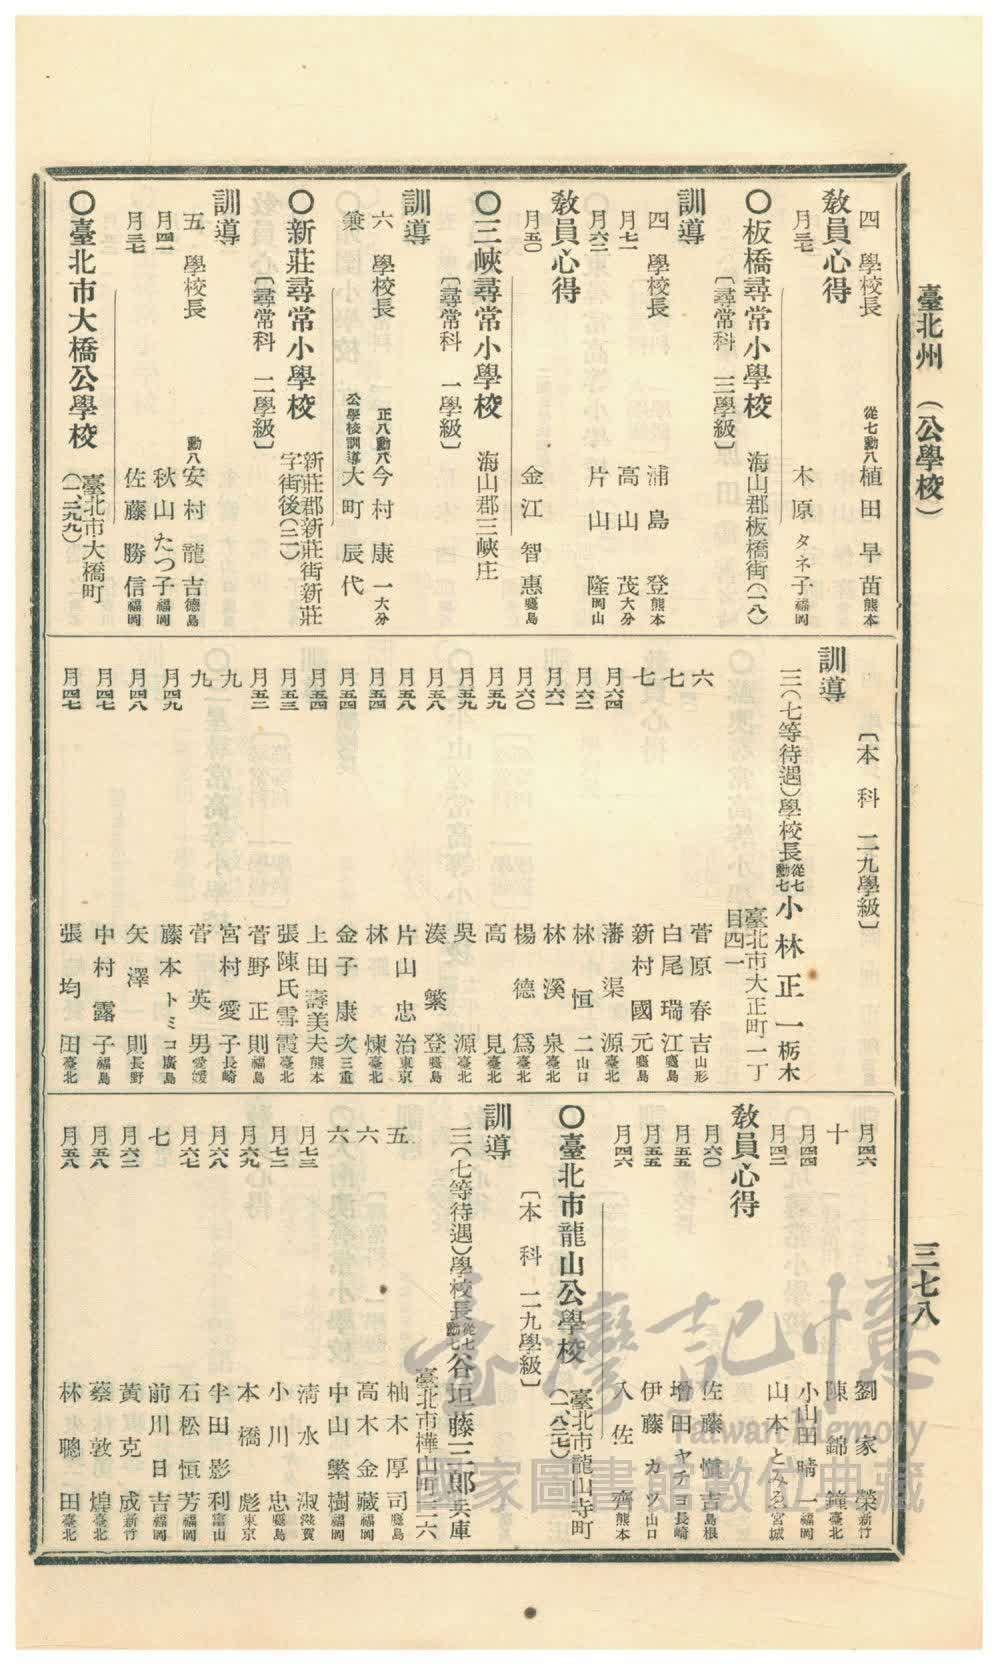 臺北州 (公學校)
三七八
四 學校長 從七勳八 植田早苗 熊本
敎員心得
月三七 木原タネ子 福岡
〇板橋尋常小學校 海山郡板橋街(一八)
〔尋常科 三學級〕
訓導
四 學校長 浦島登 熊本
月七一 高山茂 大分
月六二 片山隆 岡山
敎員心得
月五〇 金江智惠 鹿島
〇三峽尋常小學校 海山郡三峽庄
〔尋常科 一學級〕
訓導
六 學校長 正八勳八 今村康一 大分
兼 公學校訓導 大町辰代
〇新莊尋常小學校 新莊郡新莊街新莊
字街後(二一)
〔尋常科 二學級〕
訓導
五 學校長 勳八 安村龍吉 德島
月四一 秋山たつ子 福岡
月三七 佐藤勝信 福岡
〇臺北市大橋公學校 臺北市大橋町
(一、三九九)
〔本科 二九學級〕
訓導
三(七等待遇)學校長 從七勳七 小林正一 栃木
臺北市大正町一丁
目四一
六 菅原春吉 山形
七 白尾瑞江 鹿島
七 新村國元 鹿島
月六四 潘渠源 臺北
月六二 林恒二 山口
月六一 林溪泉 臺北
月六〇 楊德爲 臺北
月五九 高見 臺北
月五九 吳源 臺北
月五八 湊繁登 鹿島
月五八 片山忠治 東京
月五四 林煉 臺北
月五四 金子康次 三重
月五四 上田壽美夫 熊本
月五三 張陳氏雪霞 臺北
月五二 菅野正則 福島
九 宮村愛子 長崎
九 菅英男 愛媛
月四九 藤本トミコ 廣島
月四八 矢澤一則 長野
月四七 中村露子 福島
月四七 張均田 臺北
月四六 劉家榮 新竹
十 陳錦鐘 臺北
月四四 小山田晴一 福岡
月四二 山本とみゑ 宮城
敎員心得
月六〇 佐藤愼吉 島根
月五五 增田ヤチヨ 長崎
月五五 伊藤カツ 山口
月四六 入佐齊 熊本
〇臺北市龍山公學校 臺北市龍山寺町
(一、八三七)
〔本科 二九學級〕
訓導
三(七等待遇)學校長 從七勳七 谷垣藤三郎 兵庫
臺北市樺山町二六
五 柚木厚司 鹿島
六 高木金藏 福岡
六 中山繁樹 福岡
月七三 淸水淑 滋賀
月七二 小川忠
月六九 本橋彪 東京
月六八 半田影利 富山
月六七 石松恒芳 福岡
七 前川日吉 福岡
月六二 黃克成 新竹
月五八 蔡敦煌 臺北
月五八 林聰田 臺北
臺灣記憶
Taiwan Memory
國家圖書館數位典藏